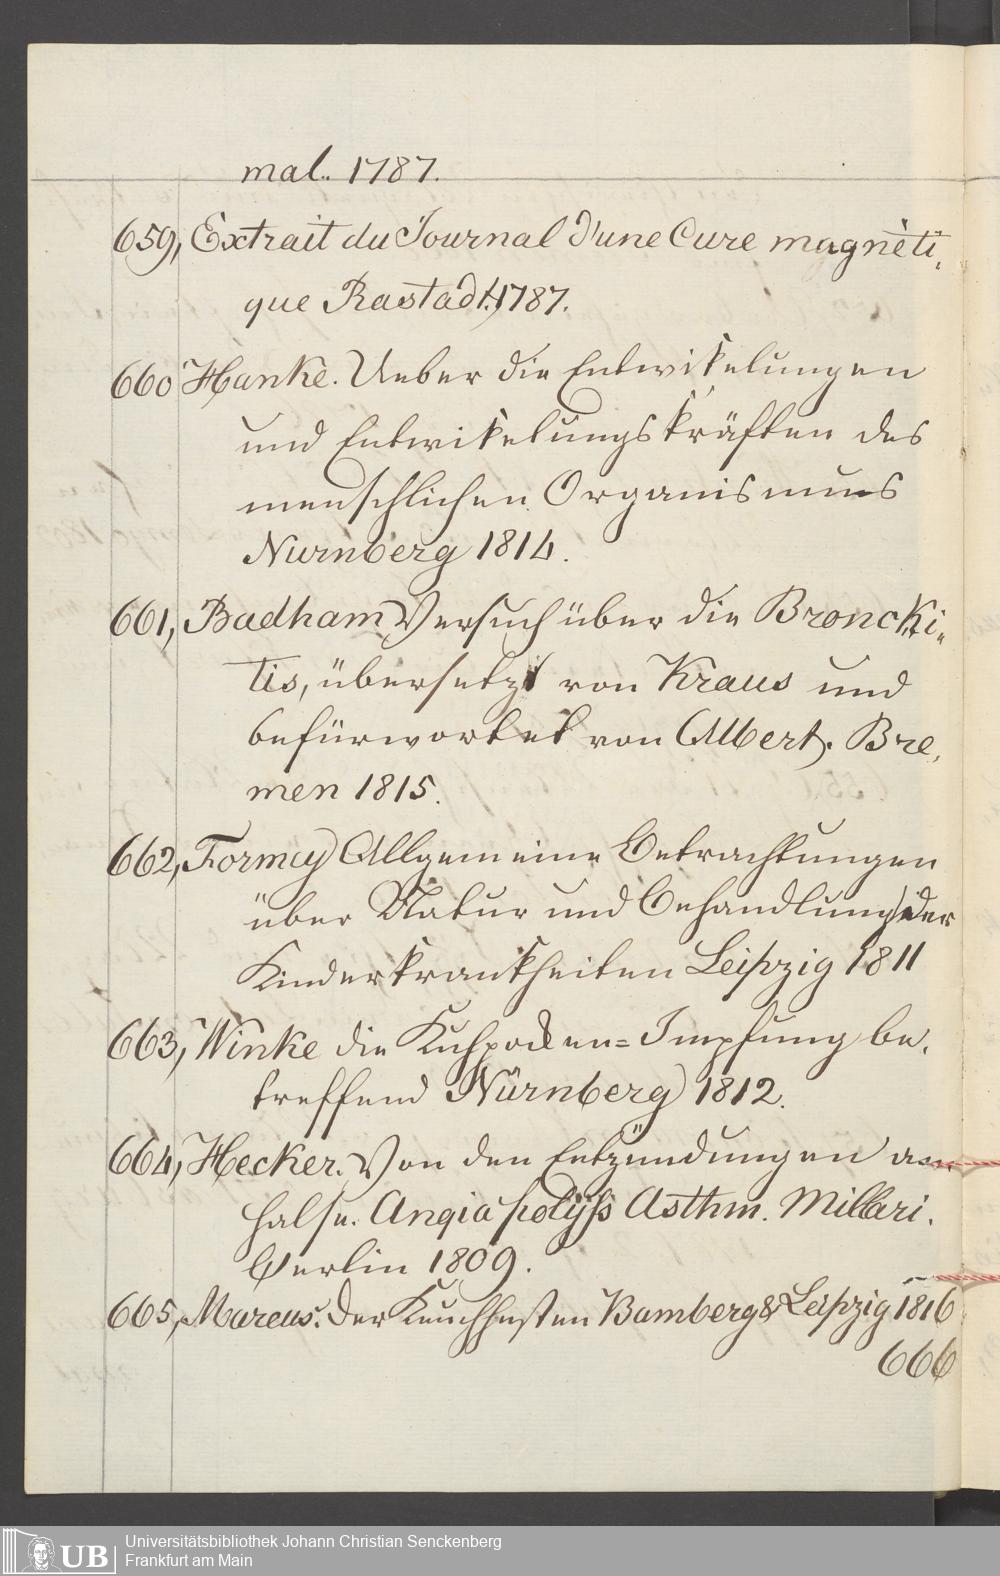 mal.. 1787.
659, Extrait du Journal d'une Cure magnèti,
que Rastadt. 1787.
660 Hanke. Ueber die Entwikelungen
und Entwikelungskräften des
menschlichen Organismus
Nurnberg 1814.
661, Badham Versuch über die Bronchi=
tis, übersetzt von Kraus und
befürwortet von Albert. Bre,
men 1815.
662, Formey Allgemeine Betrachtungen
über Natur und Behandlung der
Kinderkrankheiten Leipzig 1811
663, Winke die Kuhpocken=Impfung be,
treffend Nürnberg 1812.
664, Hecker. Von den Entzündungen am
Halse. Angia Asthm. Millari.
Berlin 1809.
665, Marcus. Der Keuchhusten Bamberg & Leipzig 1816
666
UB
Universitätsbibliothek Johann Christian Senckenberg
Frankfurt am Main